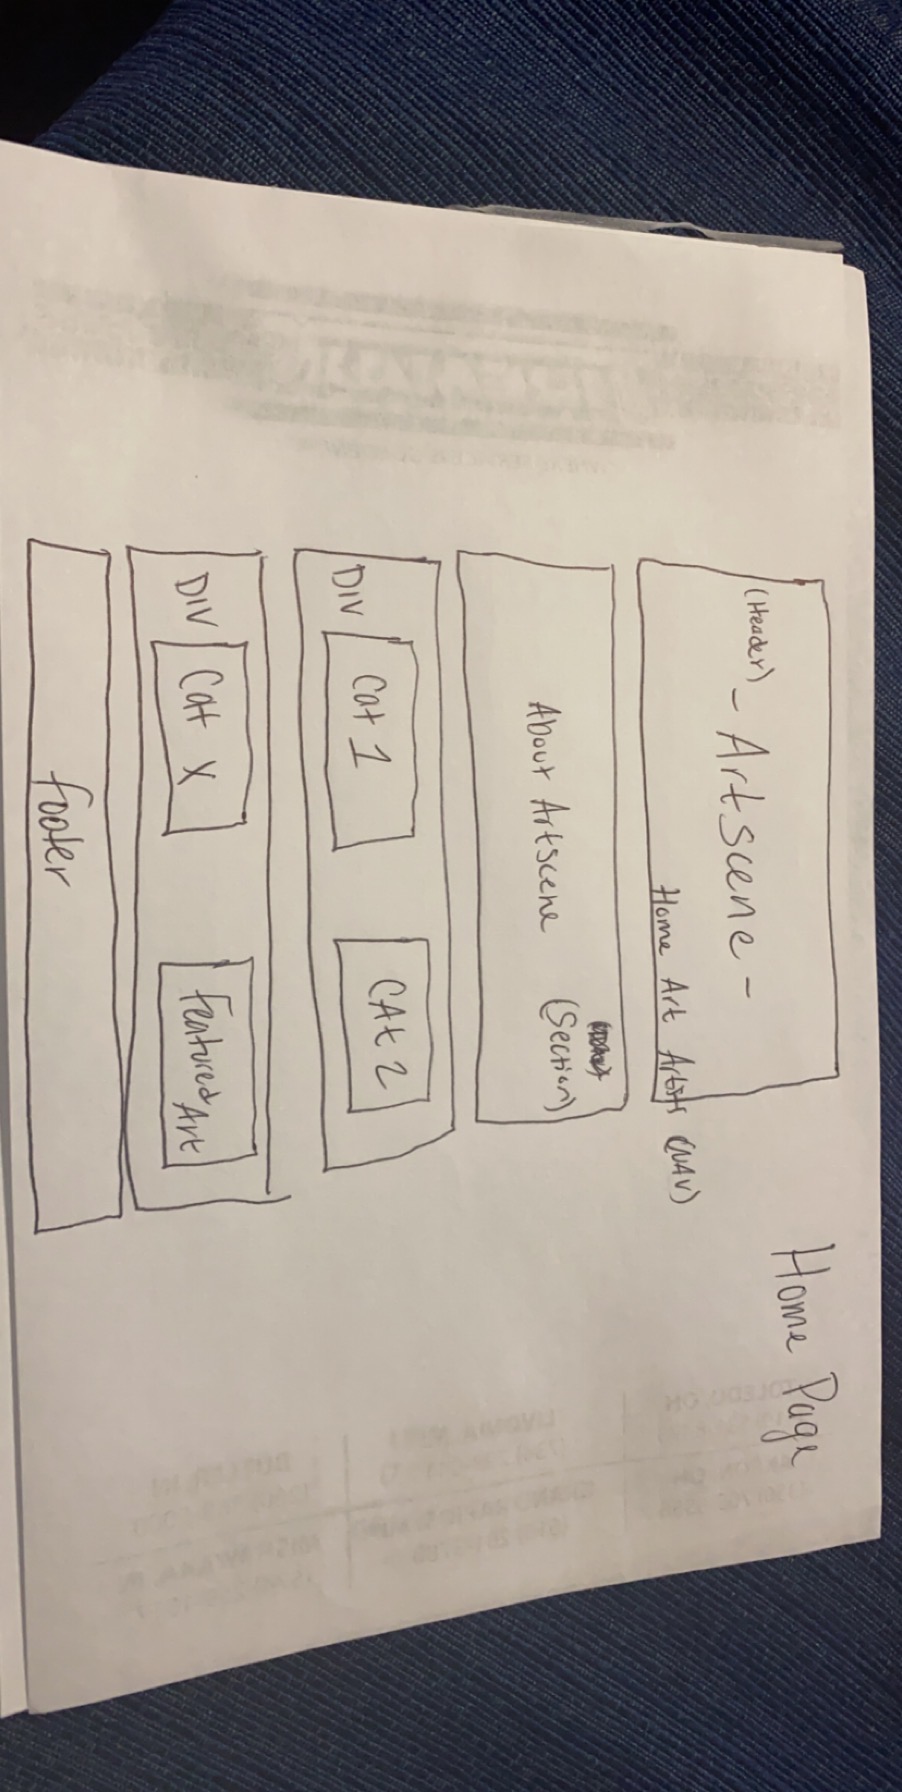 Home Page
(Header) - Artscene -
Home Art Artists (NAV)
About Artscene (Section)
DIV Cat 1 CAt 2
DIV Cat X Featured Art
footer